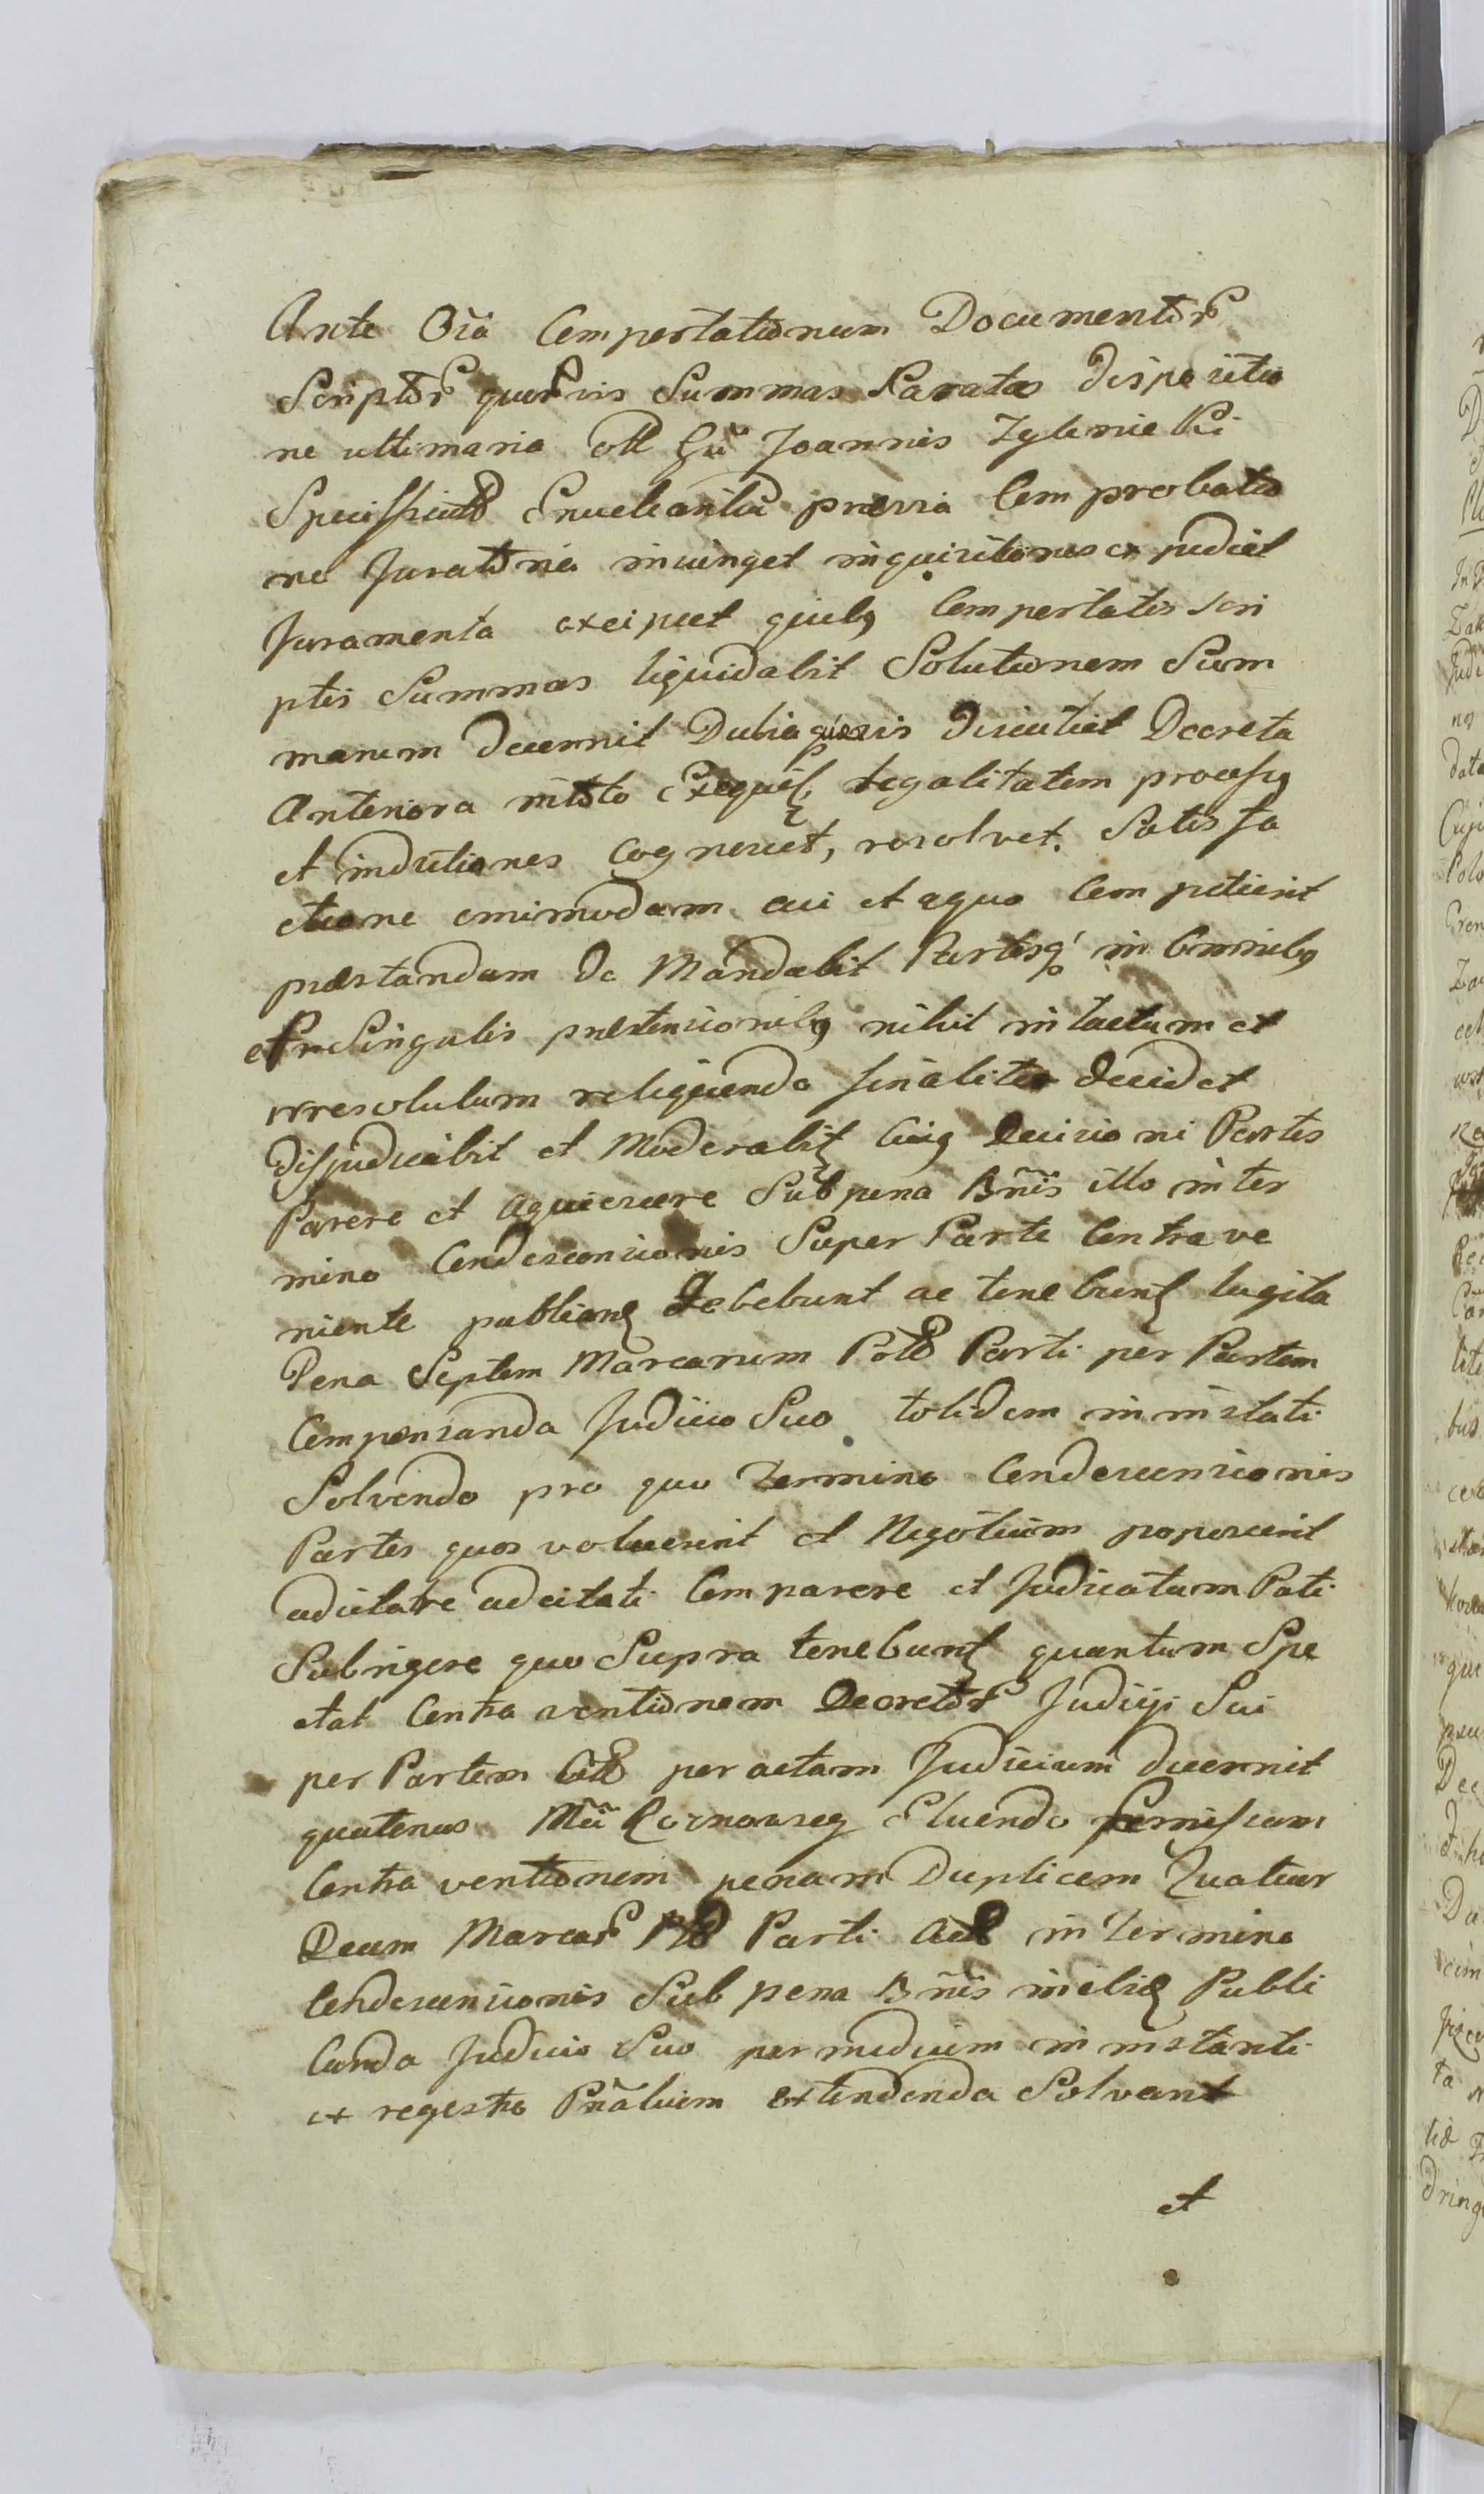 Ante Oia Comportationum Documentor
Scriptor quorvis Summas Paratas Dispositio
ne ultimaria olt Gn Joannis Zglenicki
Specifficatt Enucleantia praevia Comprobatio
ne Juratoria iniunget inquisitiones expediet
Juramenta excipiet quibq Comportatis Scri
ptis Summas liquidabit Solutionem Sum
marum decernit Dubia quaevis discutiet Decreta
Anteriora intto legalitatem processq
et inductiones Cognoscet, resolvet. Satisfa
ctione omimodam cui et aquo Competierit
praestandam De Mandabit Partesq in Omnibq
et in Singulis praetensionibq nihil intactum et
irresolutum relinquendo finaliter Decidet
Disjudicabit et Moderabit Cuiq Decisioni Partes
Parere et aquiescere Sub pena Bnis illo inter
mino Condescensionis Super Parte Contrave
niente publican debebunt ac tenebunt lugita
Pena Septem Marcarum Parti per Partem
Compensanda Judicio Suo totidem in instati
Solvendo pro quo Termino Condescensionis
Partes quos voluerint et Negotium poposcerit
adcitatre adcitati Comparere et Judicatum Pati
Subrigere quo Supra tenebunt quantum Spe
ctat Contraventionem Decretor Judicii Sui
per Partem Citt peractam Judicium decernit
quatenus Ma Eluendo Comissam
Contraventionem penam Duplicem Quatuor
Decem Marcar Parti Act in Termino
Condescensionis Sub pena Bnis Publi
canda Judicio Suo per medium in instanti
ex regestro Pnalium extendenda Solvant
et